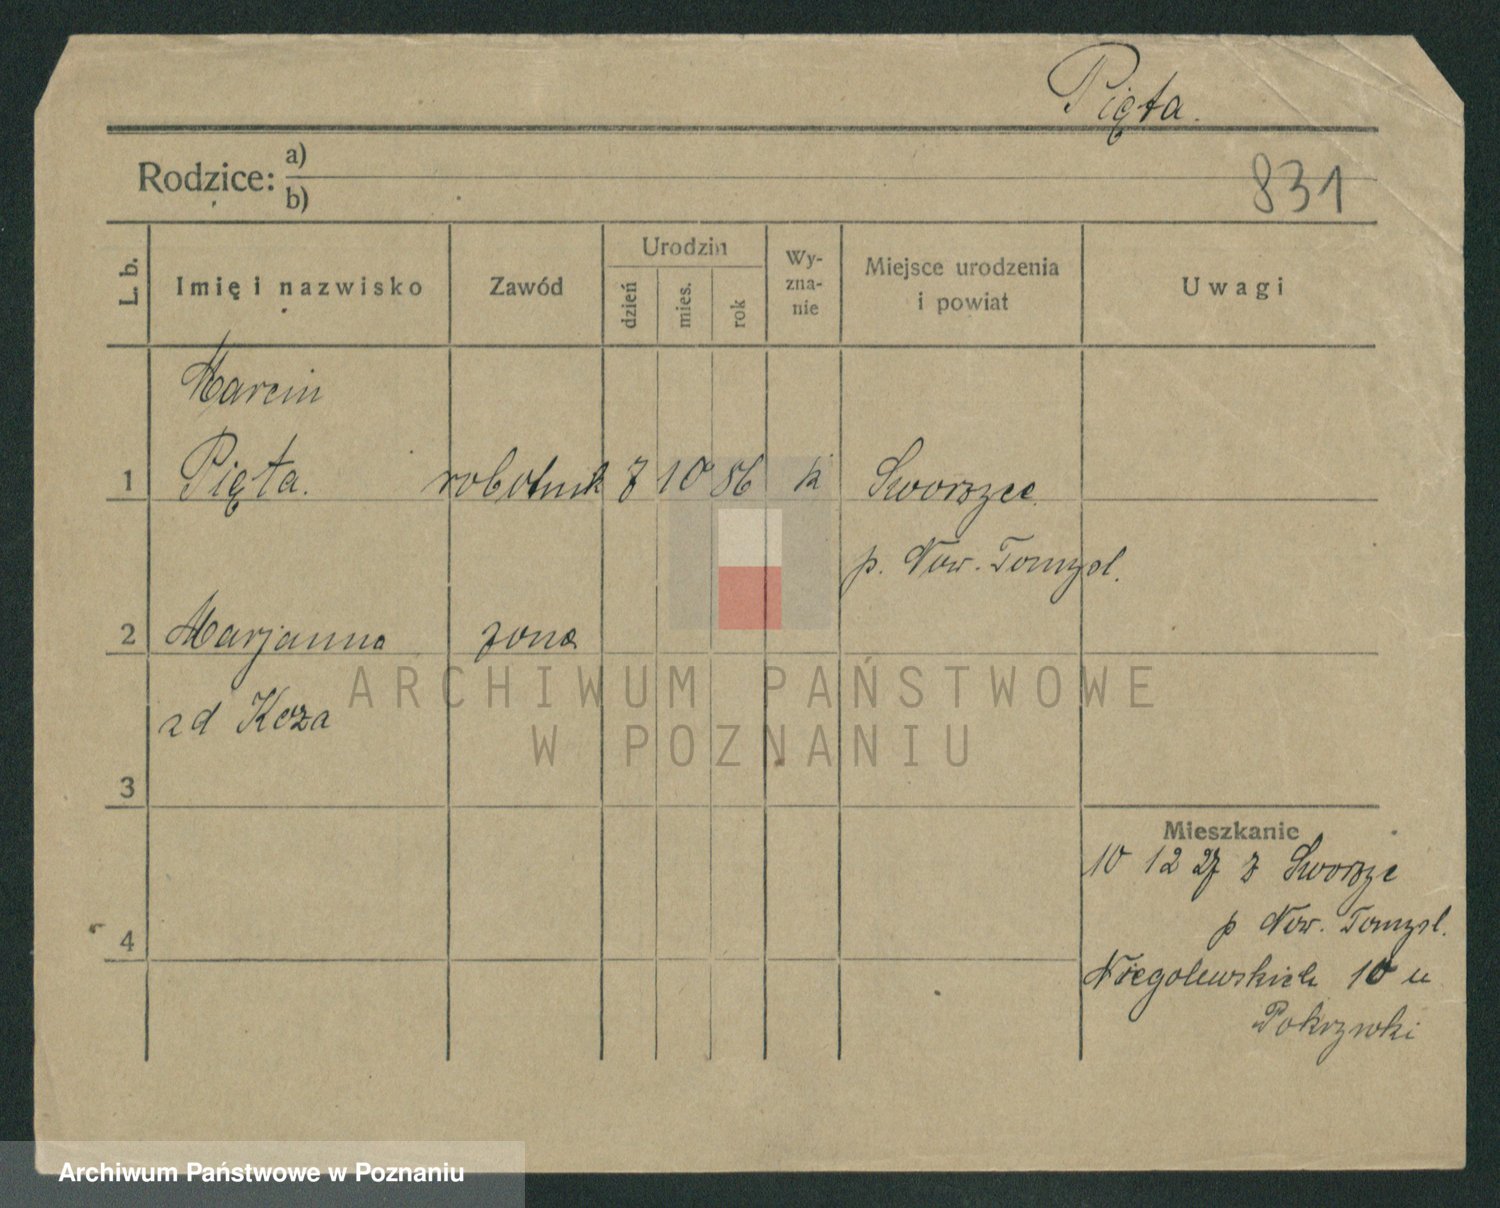 Pięta.
Rodzice: a)
b)
831
L. b.
Imię i nazwisko
Zawód
Urodzin
dzień
mies.
rok
Wy-
zna-
nie
Miejsce urodzenia
i powiat
Uwagi
Marcin
1 Pięta. robotnik 7 10 86 k Sworzyce
p. Now. Tomysl.
2 Marjanna zona
zd Koza
3
Mieszkanie
10 12 27 z Sworzyc
p Now. Tomysl.
4
Niegolewskich 10 u
Pokrzywki
ARCHIWUM PAŃSTWOWE
W POZNANIU
Archiwum Państwowe w Poznaniu